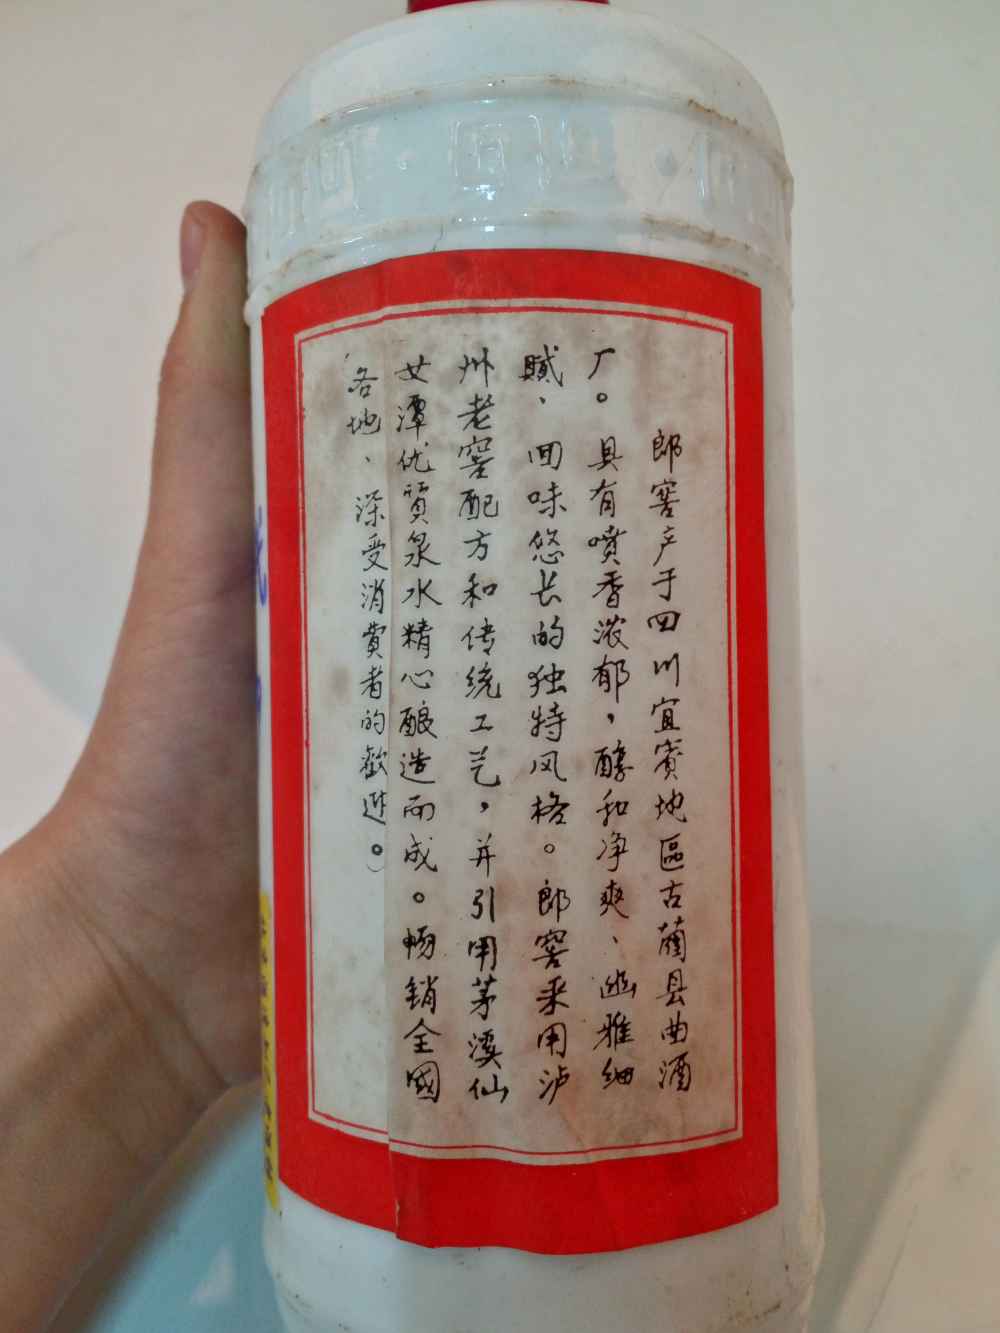 郎窖产于四川宜賓地區古藺县曲酒
厂。具有噴香浓郁，醇和净爽、幽雅细
腻、回味悠长的独特风格。郎窖采用泸
州老窖配方和传统工艺，并引用茅溪仙
女潭优質泉水精心酿造而成。畅销全國
各地、深受消費者的歡迎。